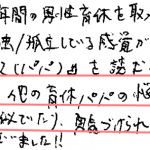 年間の男性育休を取
独/孤立している感覚が
て(パパ)友を誘
他の育休パパの
でたり、勇気づけられ
いました!!